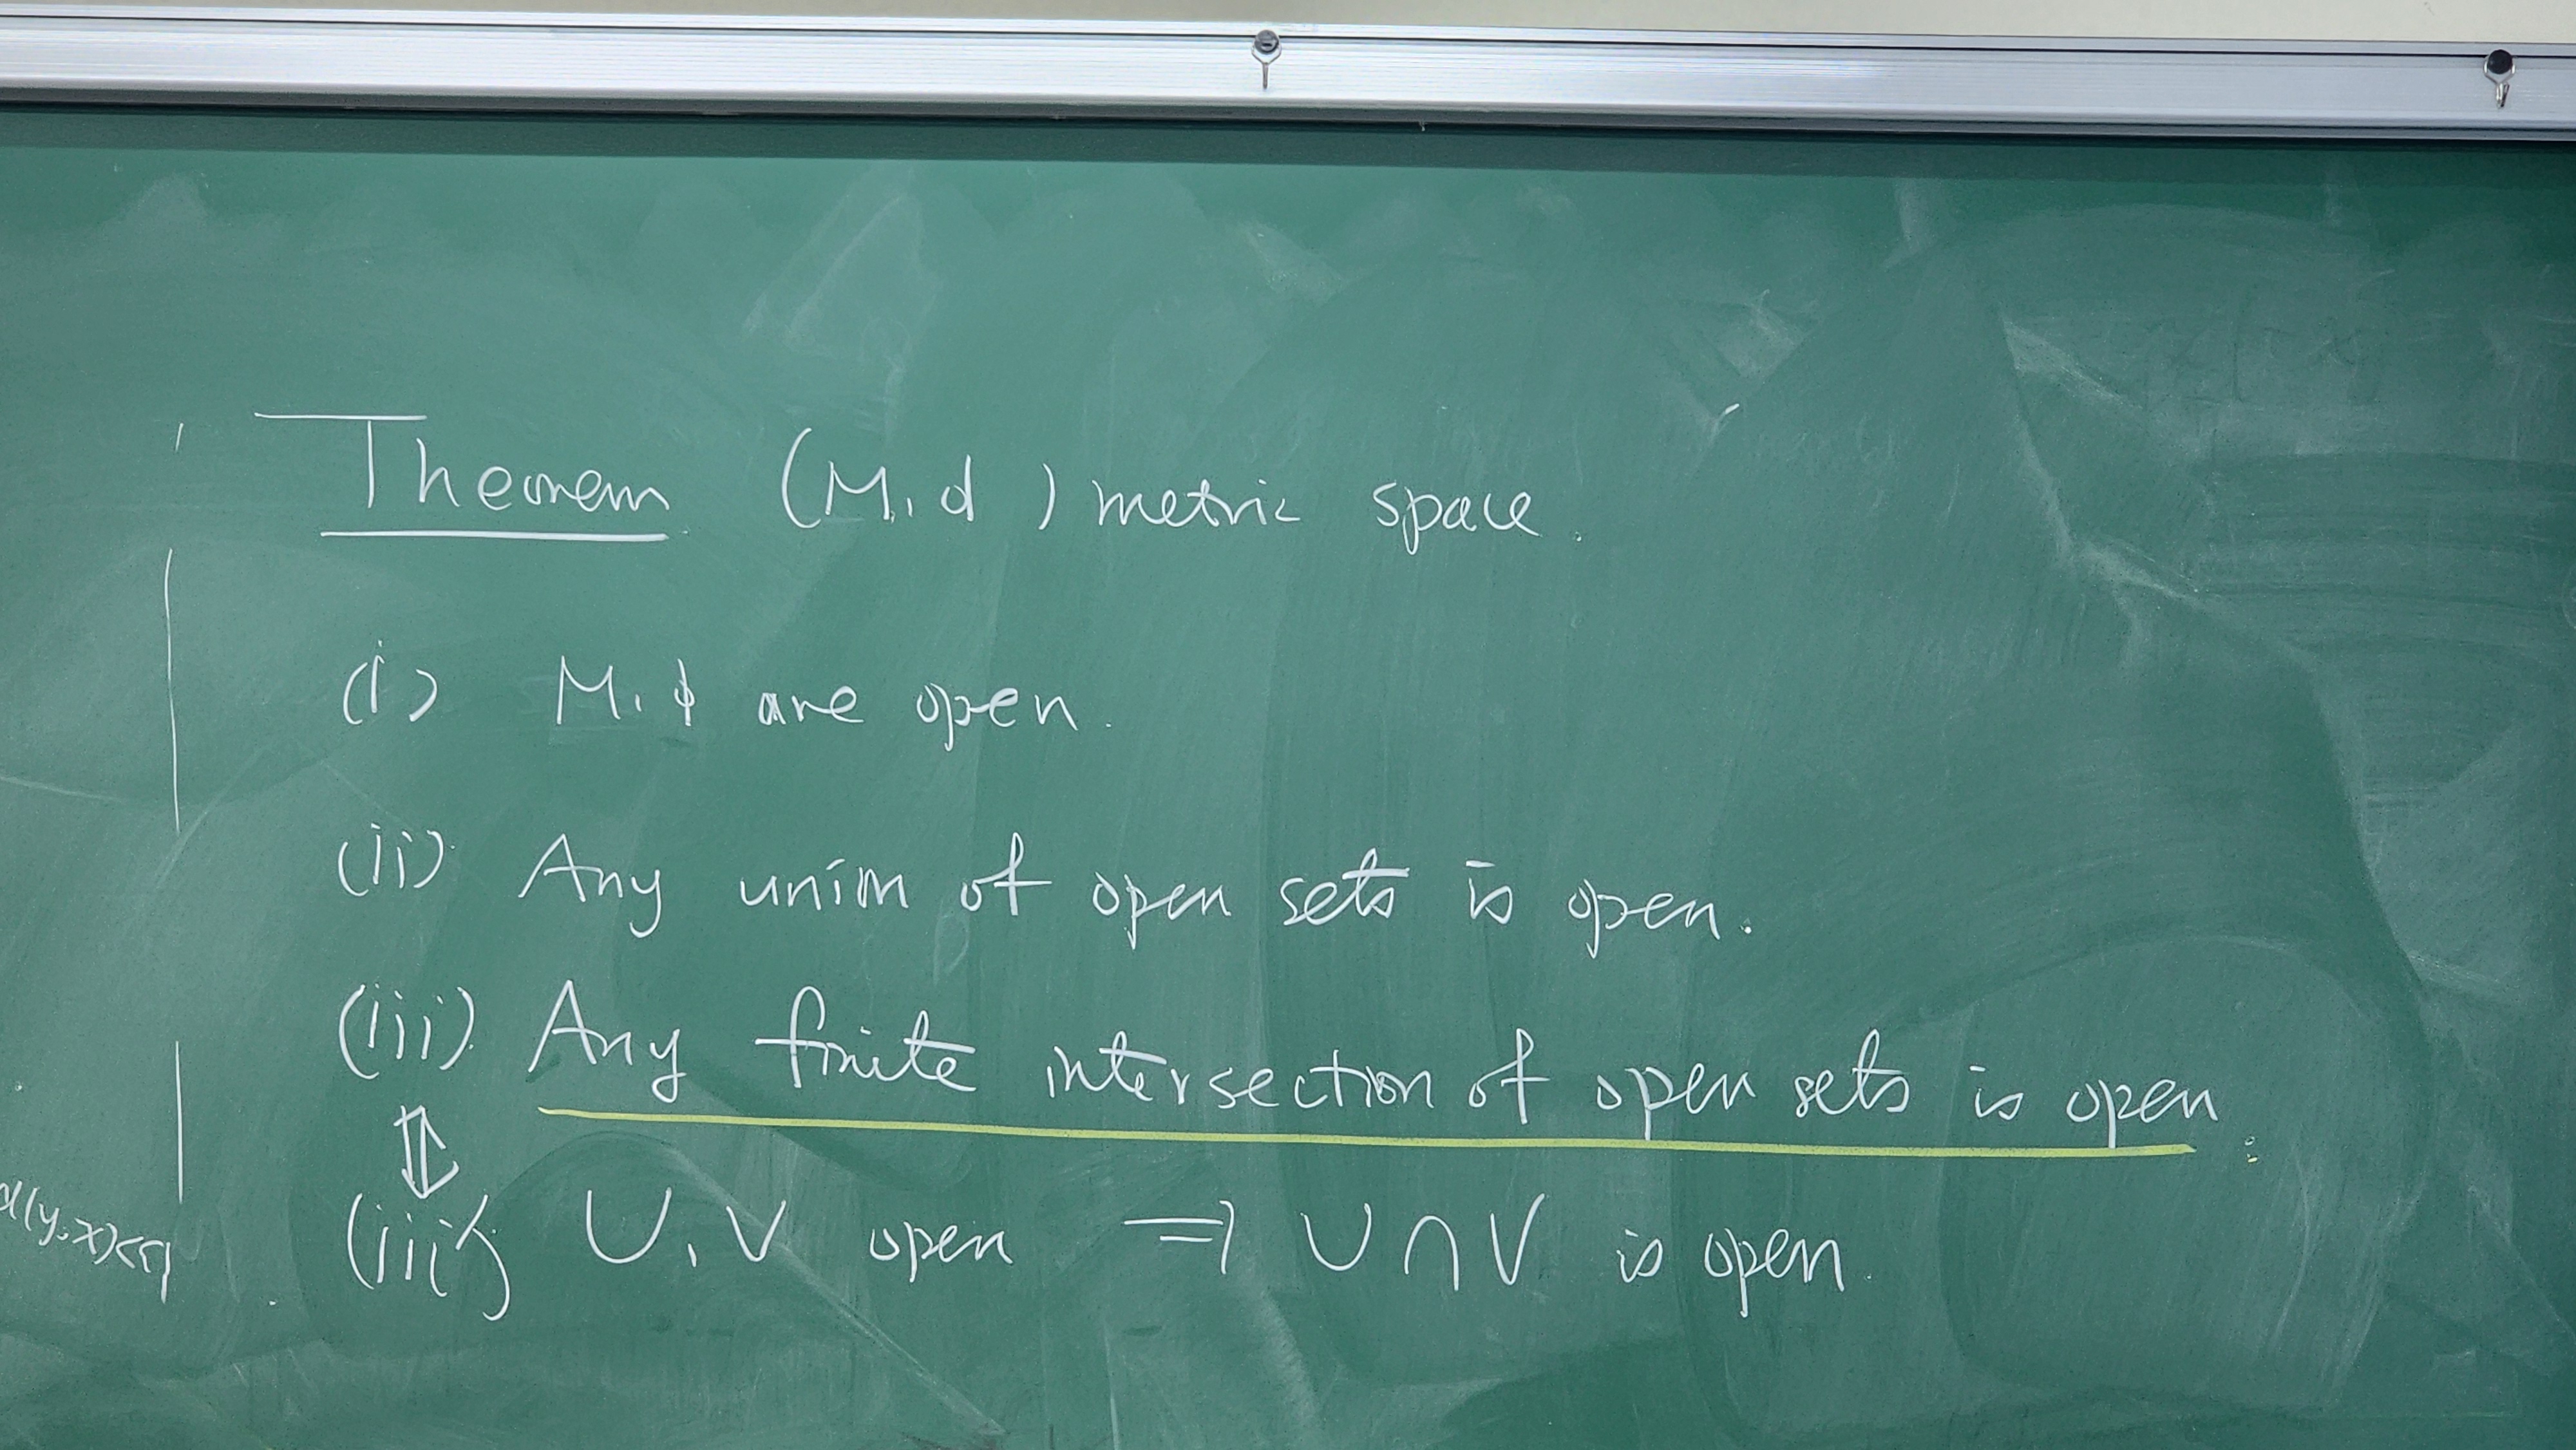 Theorem (M, d) metric space.
(i) M, ϕ are open.
(ii) Any union of open sets is open.
(iii) Any finite intersection of open sets is open.
⇕
(iii') U, V open ⇒ U ∩ V is open.